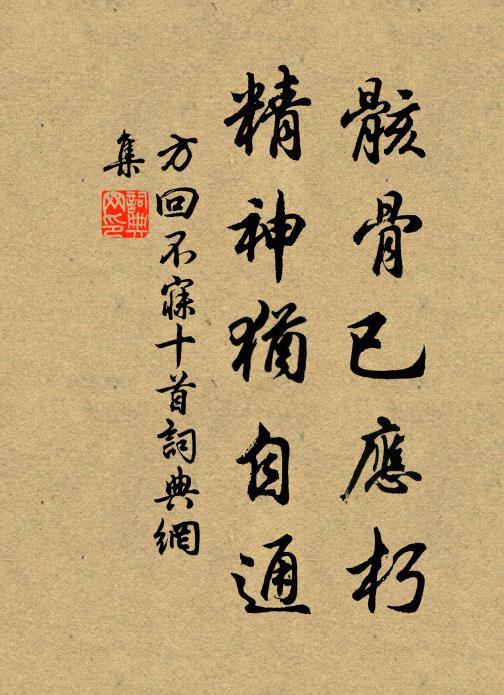 骸骨已應朽
精神猶自通
方回不寐十首詞典網
集
詞典
网印